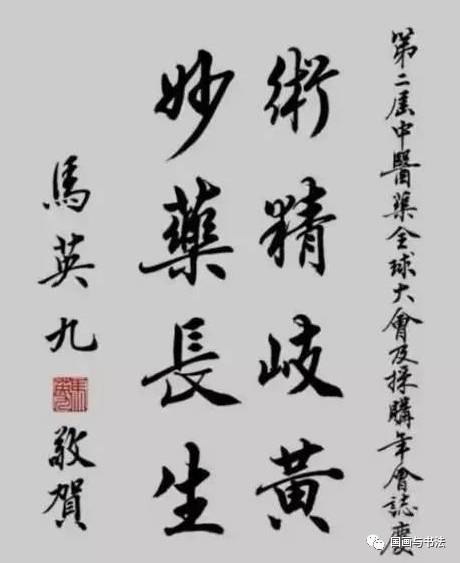 第二屆中醫藥全球大會及採購年會誌慶
術精岐黃
妙藥長生
馬英九
敬賀
国画与书法